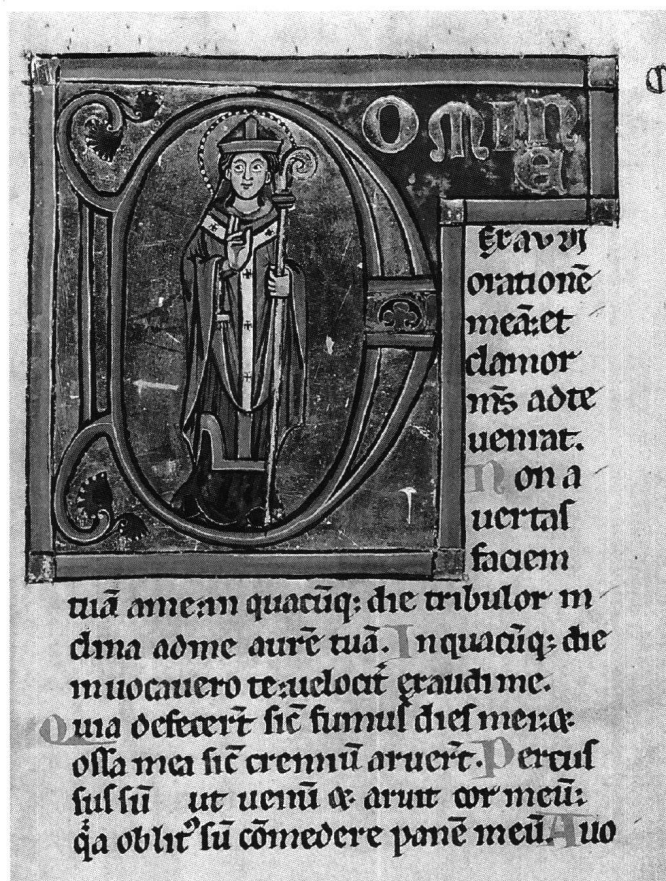 DOMINE
Exavdi
orationē
meā: et
clamor
ms̄ ad te
ueniat.
Non a
uertas
faciem
tuā a me: in quacūq; die tribulor in
clina ad me aurē tuā. In quacūq; die
inuocauero te: uelocit̄ exaudi me.
Quia defecert̄ sic̄ fumus dies mei: &
ossa mea sic̄ cremiū aruert̄. Percus
sus sū ut uenū & aruit cor meū:
q̄a oblit⁹ sū cōmedere panē meū. A uo